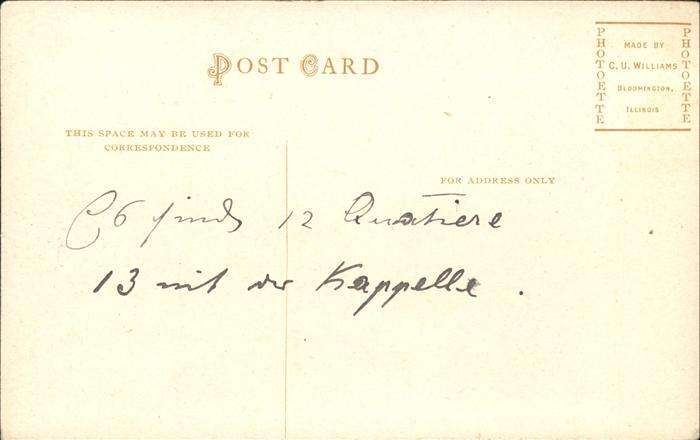 POST CARD
PHOTOETTE
MADE BY
C. U. WILLIAMS
BLOOMINGTON,
ILLINOIS
PHOTOETTE
THIS SPACE MAY BE USED FOR
CORRESPONDENCE
FOR ADDRESS ONLY
Es sind 12 Quatiere
13 mit der Kappelle .